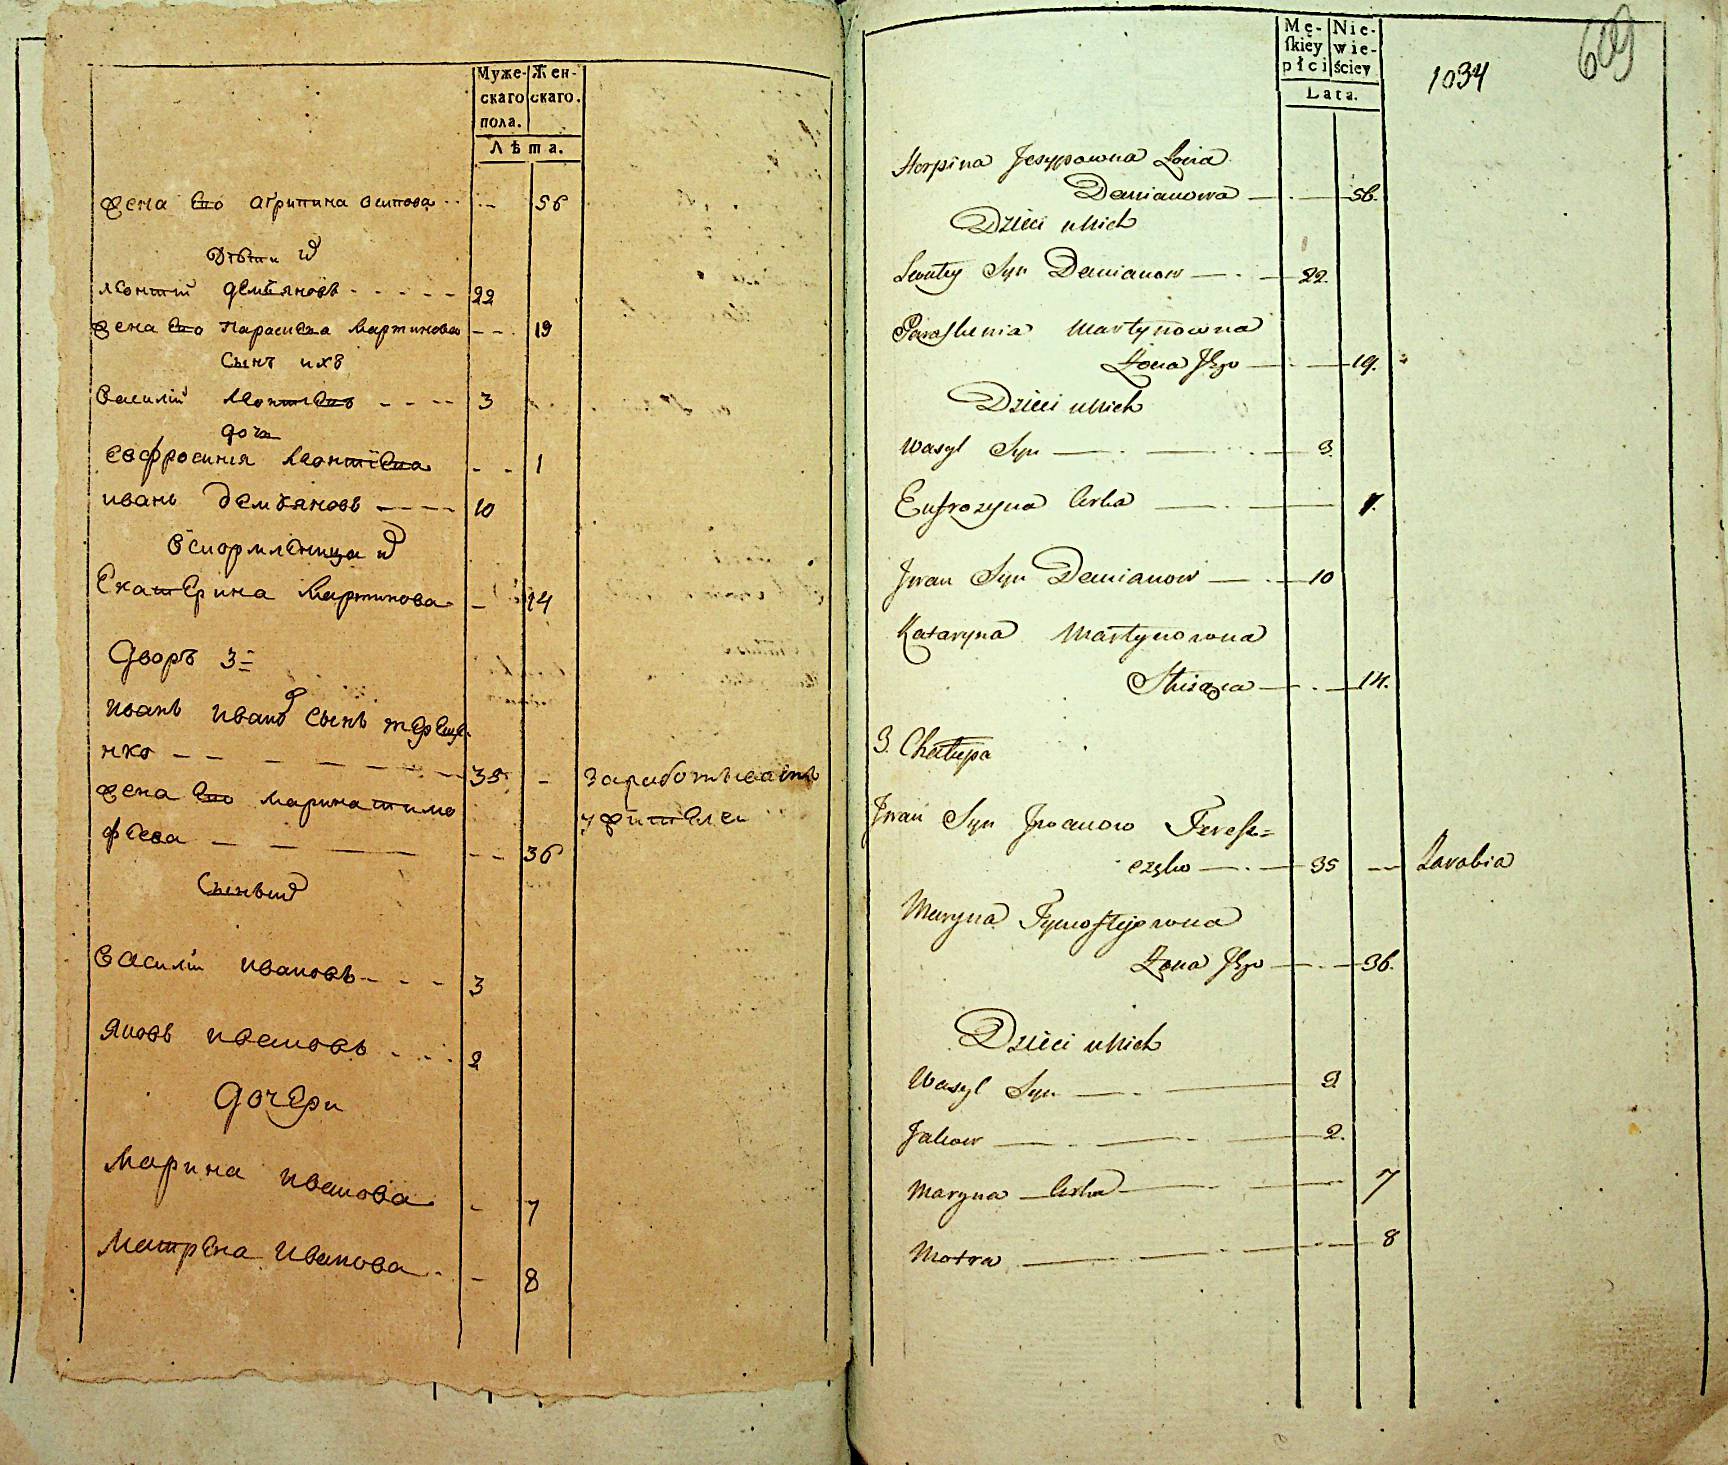 Муже-
скаго
пола.
Жен-
скаго.
Лѣта.
жена его агрипина осипова 56
Дѣти и͏хъ
леонтий демьяновъ 22
жена его Парасиева Мартинова 19
Сынъ ихъ
василий леонтиевъ 3
дочь
евфросиния леонтиева 1
иванъ демьяновъ 10
Екатерина Мартинова 14
Дворъ 3й
иванъ ивановъ сынъ тереще-
нко 35 - заработываетъ
жена его марина тимо
феева 36
Сыньи
василий ивановъ 3
яковъ ивановъ 2
дочери
Марина иванова 7
Матрена Иванова 8
Mę-
skiey
płci
Nie-
wie-
ściey
Lata.
1034
609
Horpina Jesypowna Żona
Demianowa 56.
Dzieci u Nich
Leontey Syn Demianow 22.
Paraskewia Martynowna
Żona Jego 19.
Dzieci u Nich
Wasyl Syn 3.
Eufrozyna Corka 1.
Jwan Syn Demianow 10
Kataryna Martynowna
14.
3. Chałupa
Jwan Syn Jwanow Teresz=
częko 35 Zarabia
Maryna Tymoftyjowna
Żona Jego 36.
Dzieci u Nich
Wasyl Syn 3
Jakow 2.
Maryna Corka 7
Motra 8